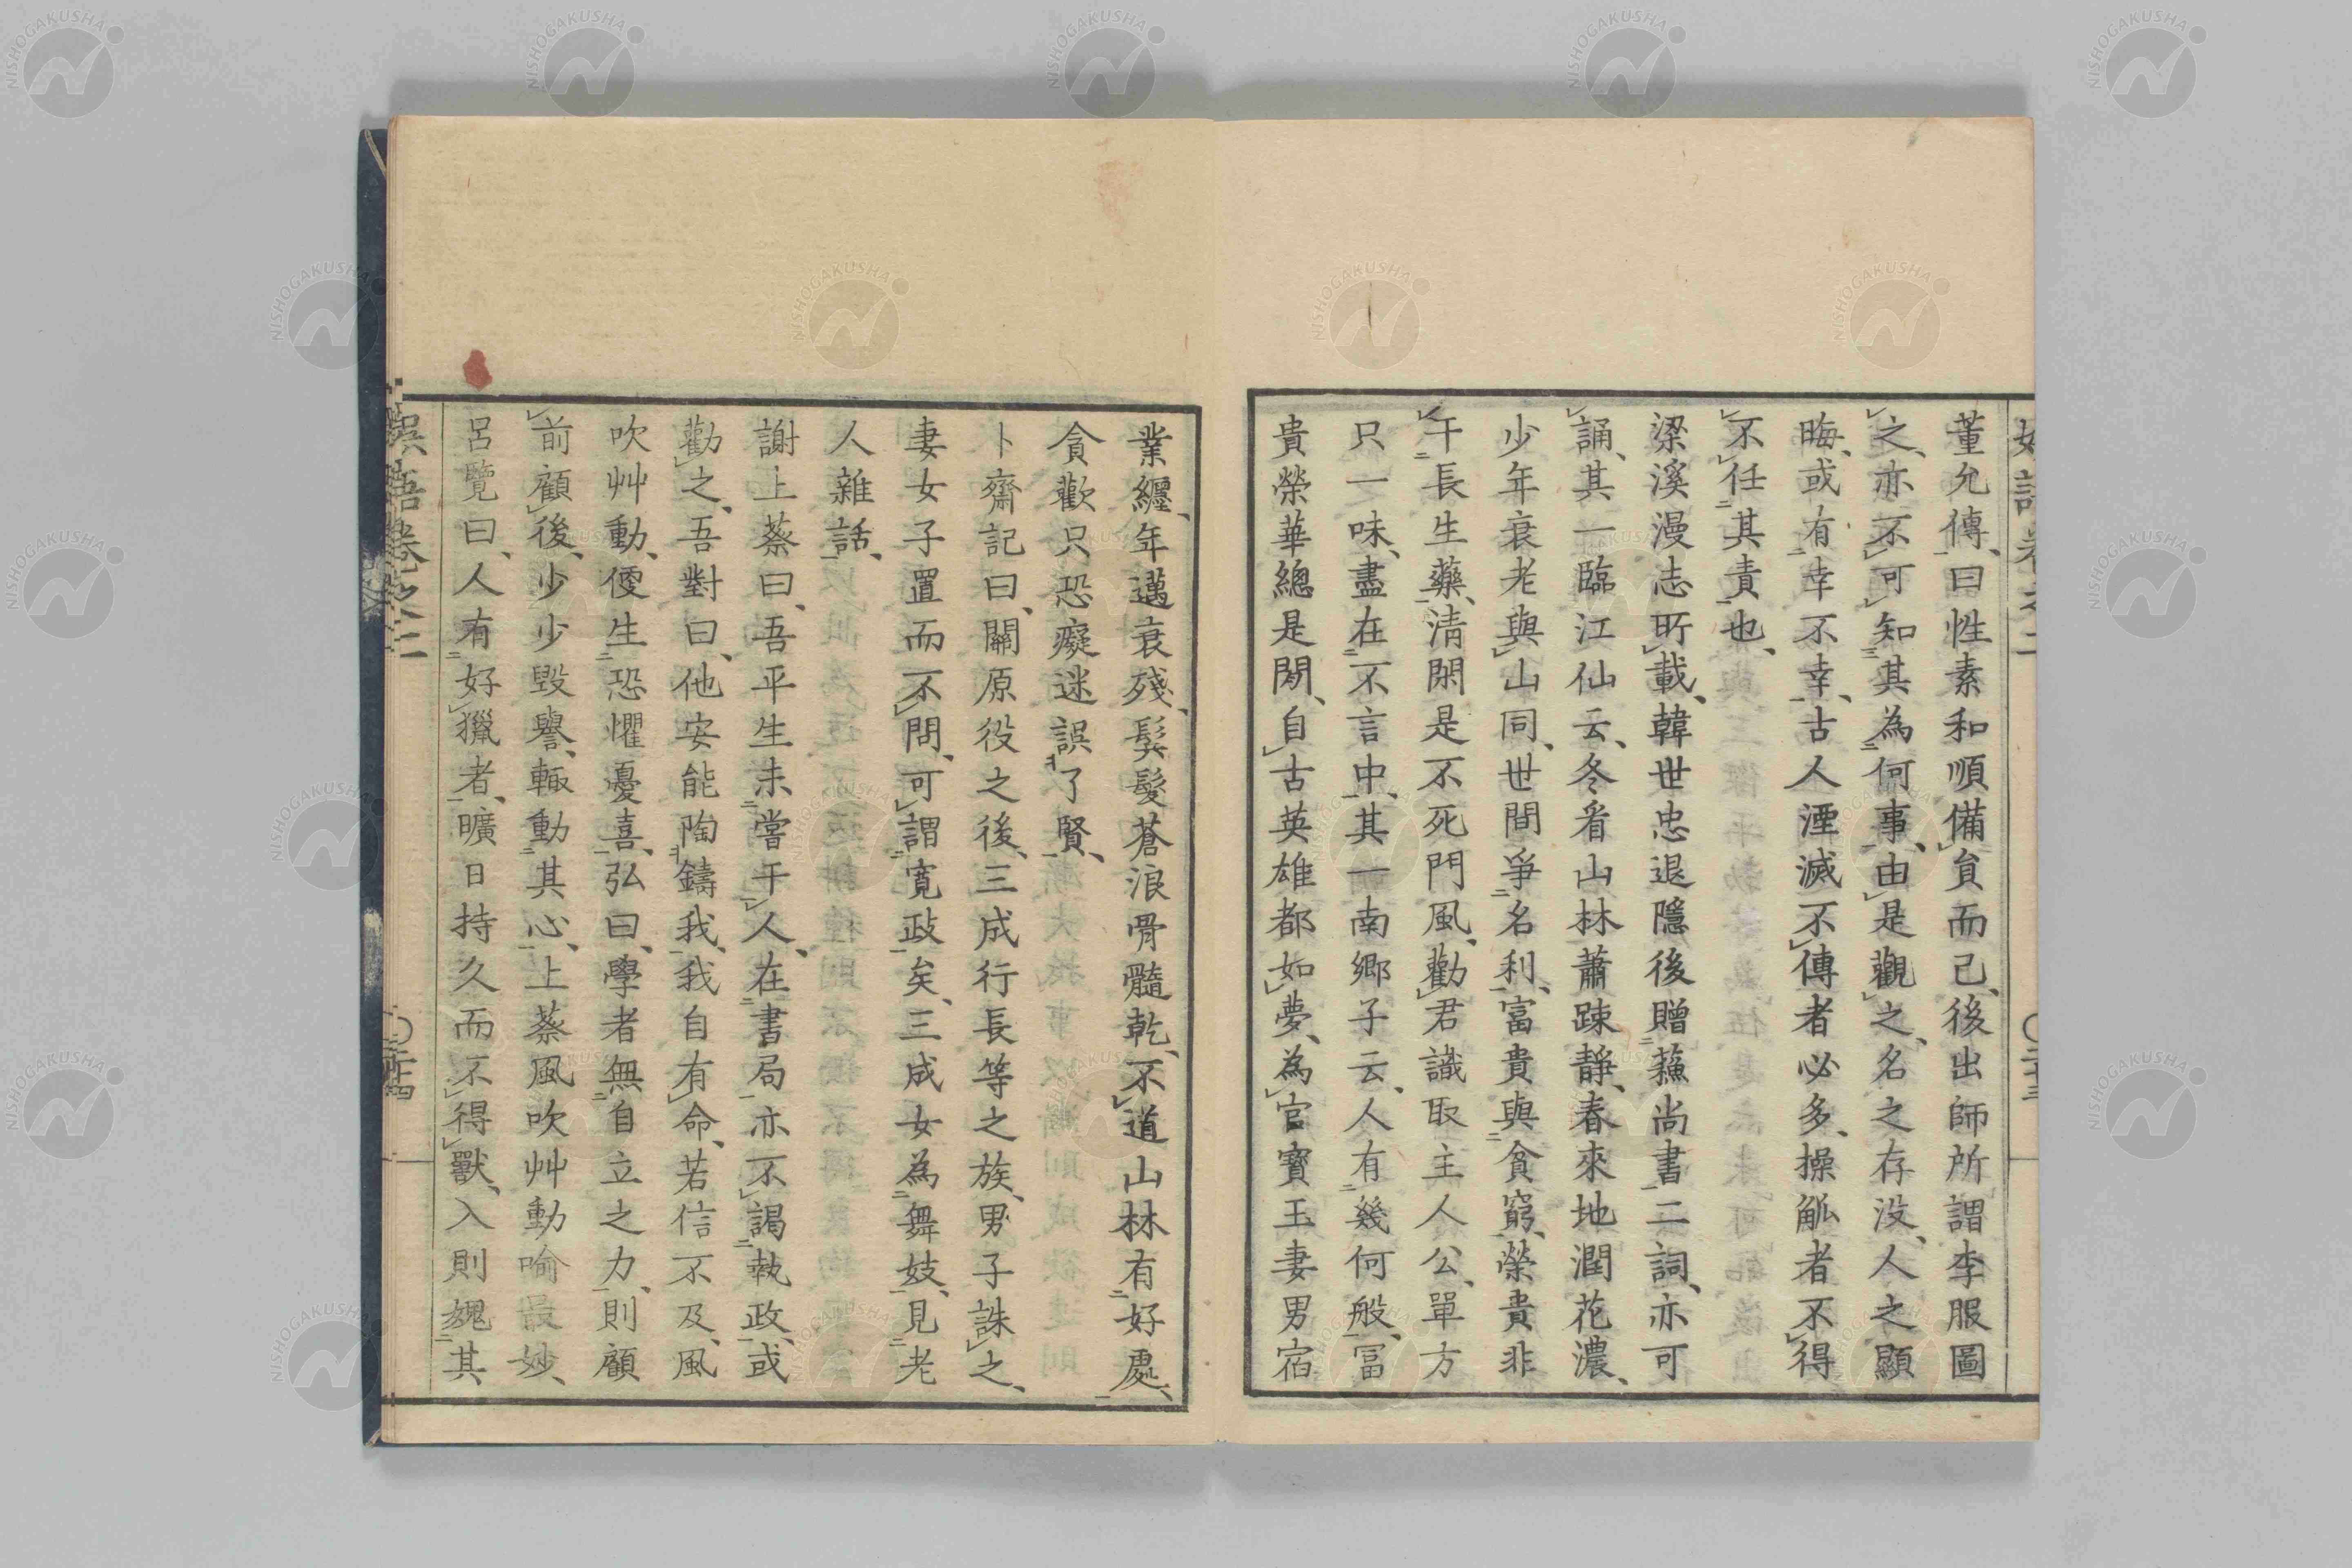 董允傳、曰性素和順備員而已、後出師所謂李服圖
之、亦不可知其為何事、由是觀之、名之存没、人之顯
晦、或有幸不幸、古人湮滅不傳者必多、操觚者不得
不任其責也、
梁溪漫志所載、韓世忠退隱後贈蘓尚書二詞、亦可
誦、其一臨江仙云、冬看山林蕭踈靜、春來地潤花濃、
少年衰老與山同、世間爭名利、富貴與貧窮、榮貴非
干長生藥、清閑是不死門風、勸君識取主人公、單方
只一味、盡在不言中、其一南鄉子云、人有幾何般、冨
貴榮華總是閑、自古英雄都如夢、為官寳玉妻男宿
業纒、年邁衰殘、鬂髮蒼浪骨髓乾、不道山林有好處、
貪歡只恐癡迷誤了賢、
卜齋記曰、關原役之後、三成行長等之族、男子誅之、
妻女子置而不問、可謂寛政矣、三成女為舞妓、見老
人雜話、
謝上蔡曰、吾平生未嘗干人、在書局亦不謁執政、或
勸之、吾對曰、他安能陶鑄我、我自有命、若信不及、風
吹艸動、便生恐懼憂喜、弘曰、學者無自立之力、則顧
前顧後、少少毀譽、輙動其心、上蔡風吹艸動喻最妙、
呂覽曰、人有好獵者、曠日持久而不得獸、入則媿其
NISHOGAKUSHA